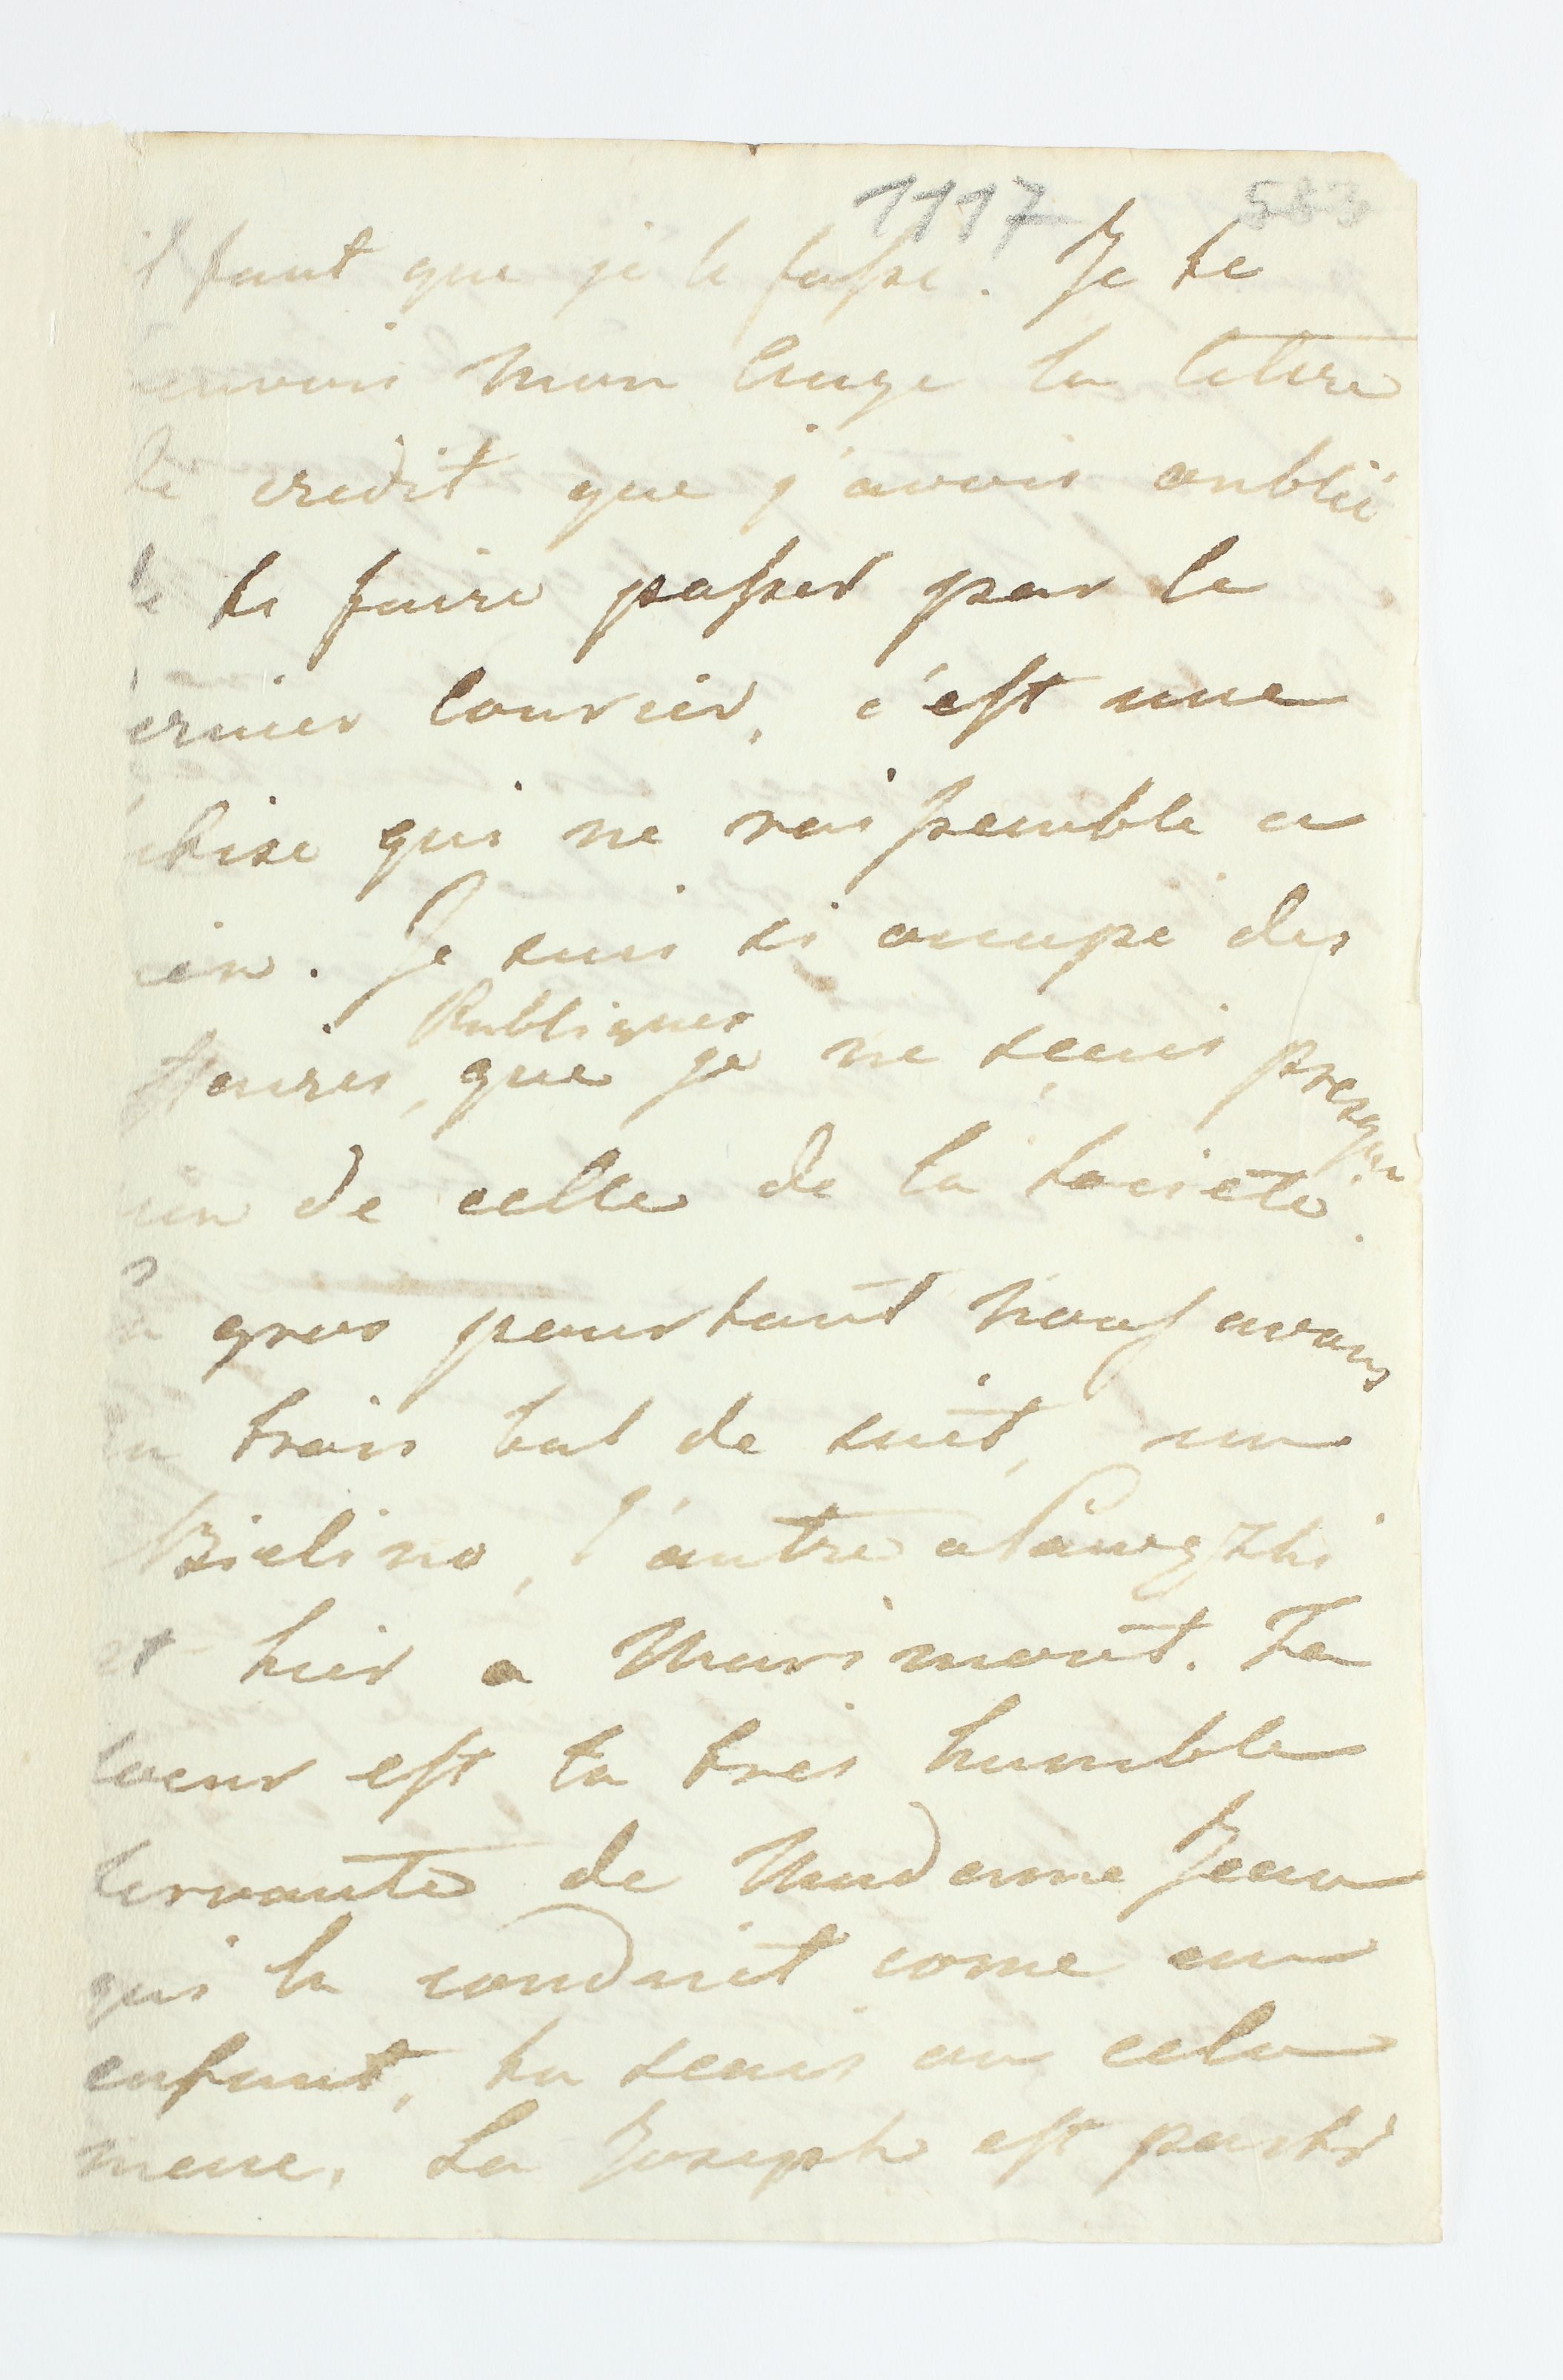 1117 583
il faut que je le fasse. Je te
envois mon Ange la lettre
de credit que j'avois oublié
de te faire passer par le
ernier Courier, c'est une
etise qui ne raissemble a
ien. Je suis si occupé des
Publiques
ffaires, que je ne scais presque
ien de celle de la societé.
En gros pourtant nous avons
eu trois bal de suit, un
Bielino, l'autre a
et hier a Marimont. Ta
soeur est la tres humble
servante de Madame Jean
qui la conduit come un
enfant, tu scais ou cela
mene. La Joseph est parti